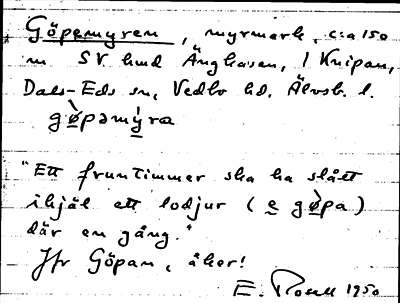 Göpemyren, myrmark, c:a 150
m SV. hmd Änghasen, i Knipan,
Dals-Eds sn, Vedbo hd. Älvsb. l.
gø̀pəmýra
"Ett fruntimmer ska ha slått
ihjäl ett lodjur (e gø̀pa)
där en gång."
Jfr Göpan, åker!
E. 1950